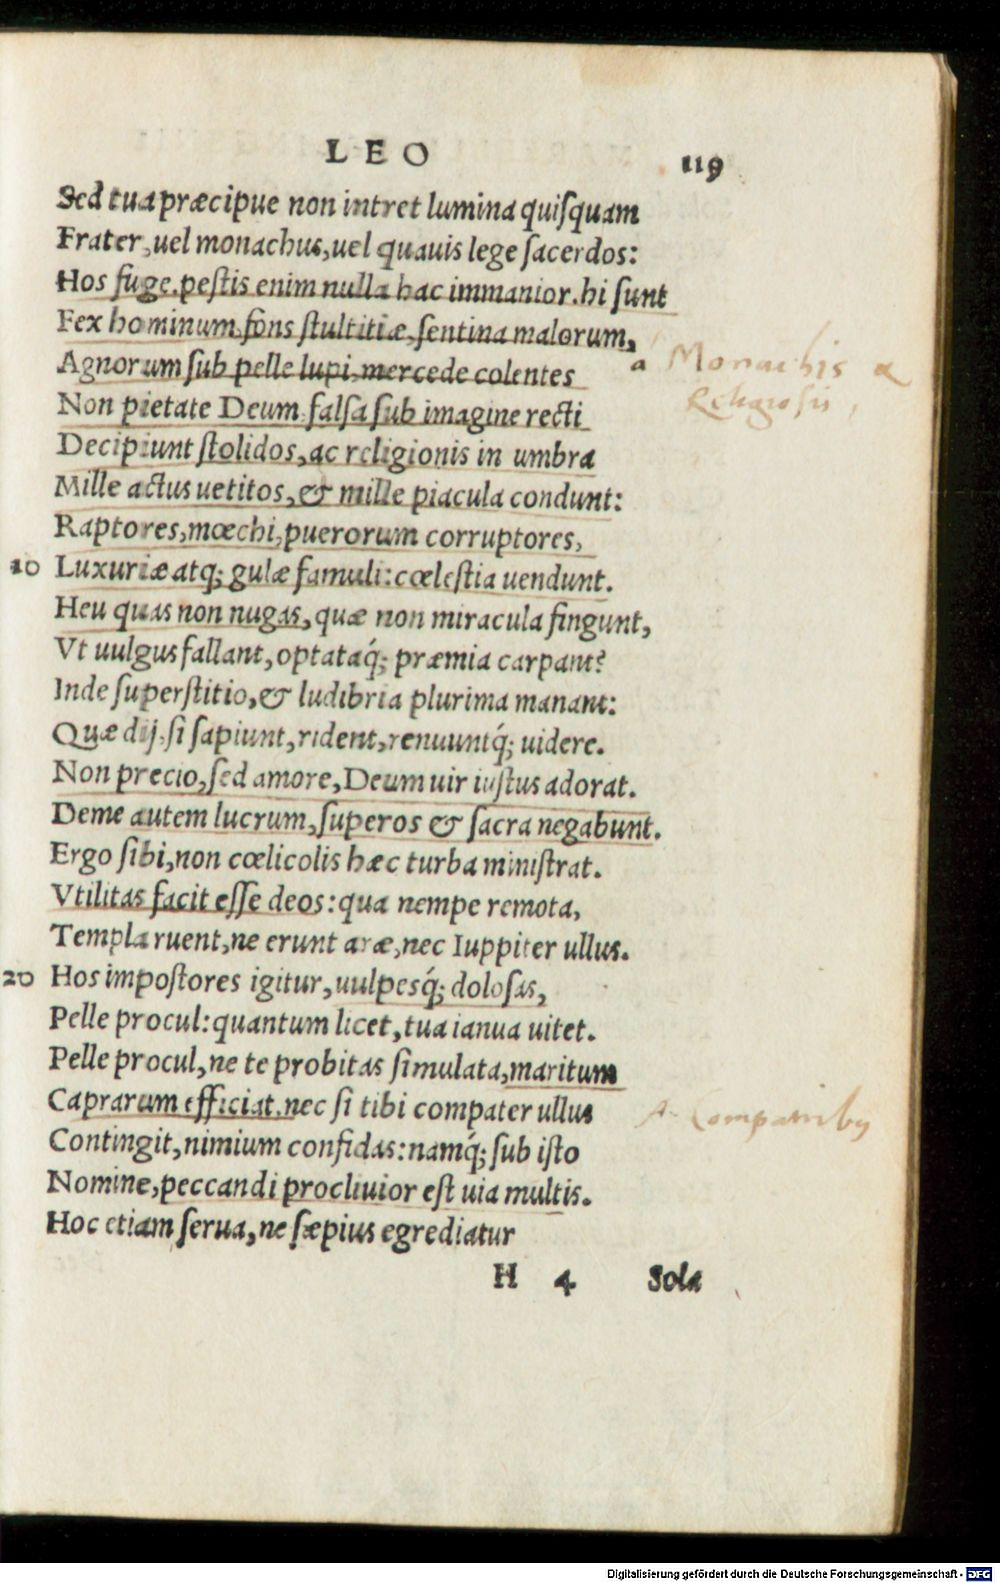 LEO 119
Sed tua præcipue non intret lumina quiſquam
Frater, uel monachus, uel quauis lege ſacerdos:
Hos fuge. peſtis enim nulla hac immanior. hi ſunt
Fex hominum, fons ſtultitiæ, ſentina malorum,
Agnorum ſub pelle lupi, mercede colentes
a Monachis &
Religiosis,
Non pietate Deum. falſa ſub imagine recti
Decipiunt ſtolidos, ac religionis in umbra
Mille actus uetitos, & mille piacula condunt:
Raptores, mœchi, puerorum corruptores,
10 Luxuriæ atq; gulæ famuli: cœleſtia uendunt.
Heu quas non nugas, quæ non miracula fingunt,
Vt uulgus fallant, optataq́; præmia carpant?
Inde ſuperſtitio, & ludibria plurima manant:
Quæ dij, ſi ſapiunt, rident, renuuntq́; uidere.
Non precio, ſed amore, Deum uir iuſtus adorat.
Deme autem lucrum, ſuperos & ſacra negabunt.
Ergo ſibi, non cœlicolis hæc turba miniſtrat.
Vtilitas facit eſſe deos: qua nempe remota,
Templa ruent, ne erunt aræ, nec Iuppiter ullus.
20 Hos impoſtores igitur, uulpesq́; doloſas,
Pelle procul: quantum licet, tua ianua uitet.
Pelle procul, ne te probitas ſimulata, maritum
Caprarum efficiat. nec ſi tibi compater ullus
A Compatribus
Contingit, nimium confidas: namq́; ſub iſto
Nomine, peccandi procliuior eſt uia multis.
Hoc etiam ſerua, ne ſæpius egrediatur
H 4 Sola
Digitalisierung gefördert durch die Deutsche Forschungsgemeinschaft - DFG